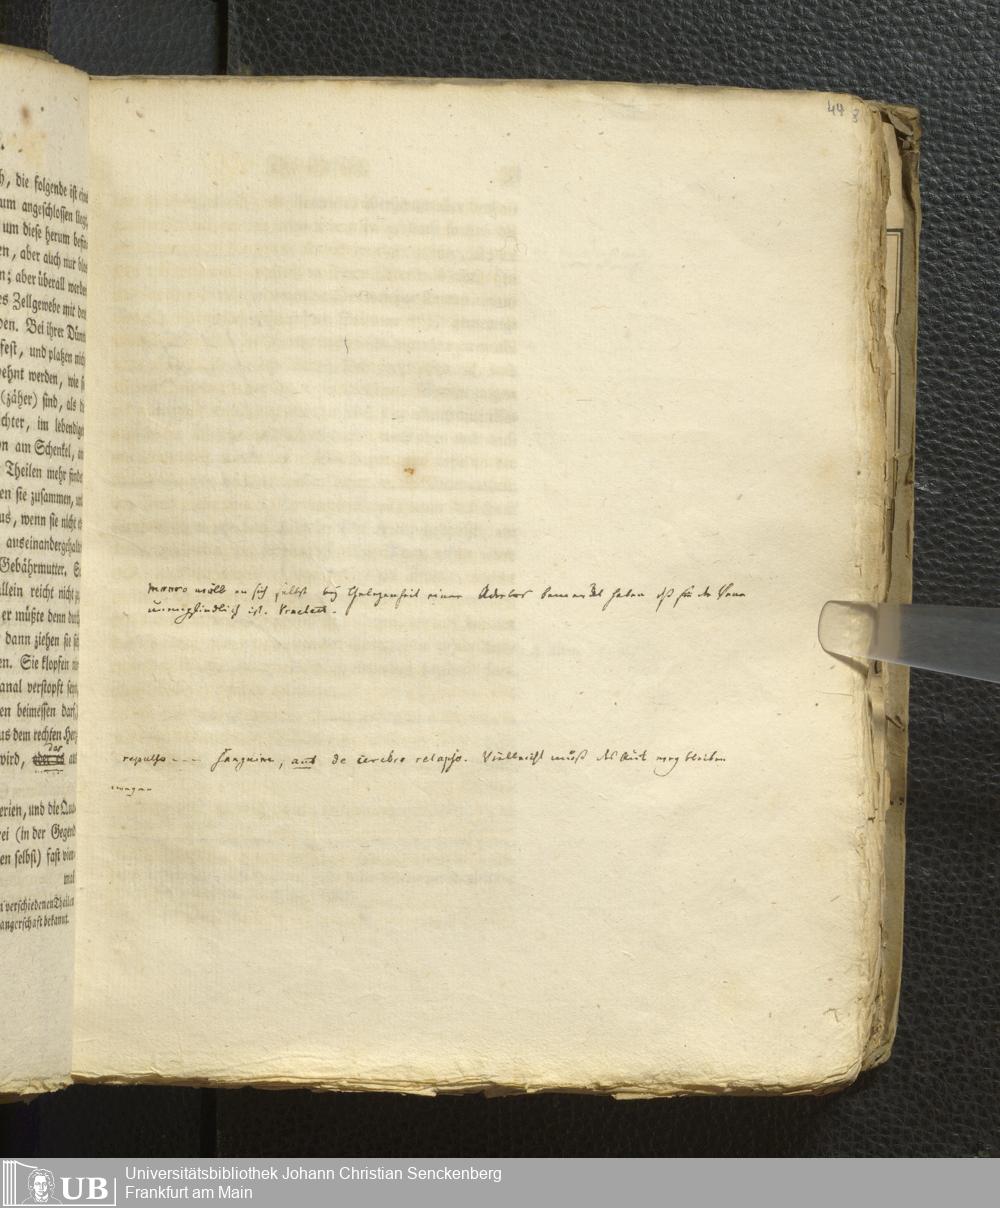 h, die folgende ist eine
um angeschlossen liegt,
um diese herum befin
en, aber auch nur blos
n; aber überall werden
es Zellgewebe mit den
den. Bei ihrer Dünn
fest, und platzen nich
dehnt werden, wie si
(zäher) sind, als di
chter, im lebendige
n am Schenkel, an
Theilen mehr finde
en sie zusammen, und
us, wenn sie nicht
auseinandergehalte
Gebährmutter.
allein reicht nicht zu
er müßte denn durch
dann ziehen sie sich
en. Sie klopfen
anal verstopft seyn,
en beimessen darf,
us dem rechten Herz
das
wird, oder es
erien, und die
ei (in der Gegend
en selbst) fast vier-
mal
n verschiedenen Theilen
angerschaft bekannt.
44
Monro will an sich selbst bey Gelegenheit einer Aderlas bemerckt haben daß die Vena
unempfindlich ist.
repulso --- sanguine, aut de cerebro relapso. Vielleicht muß das Aut wegbleiben
UB
Universitätsbibliothek Johann Christian Senckenberg
Frankfurt am Main